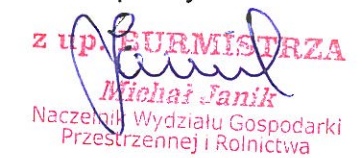 z up. BURMISTRZA
Michał Janik
Naczelnik Wydziału Gospodarki
Przestrzennej i Rolnictwa